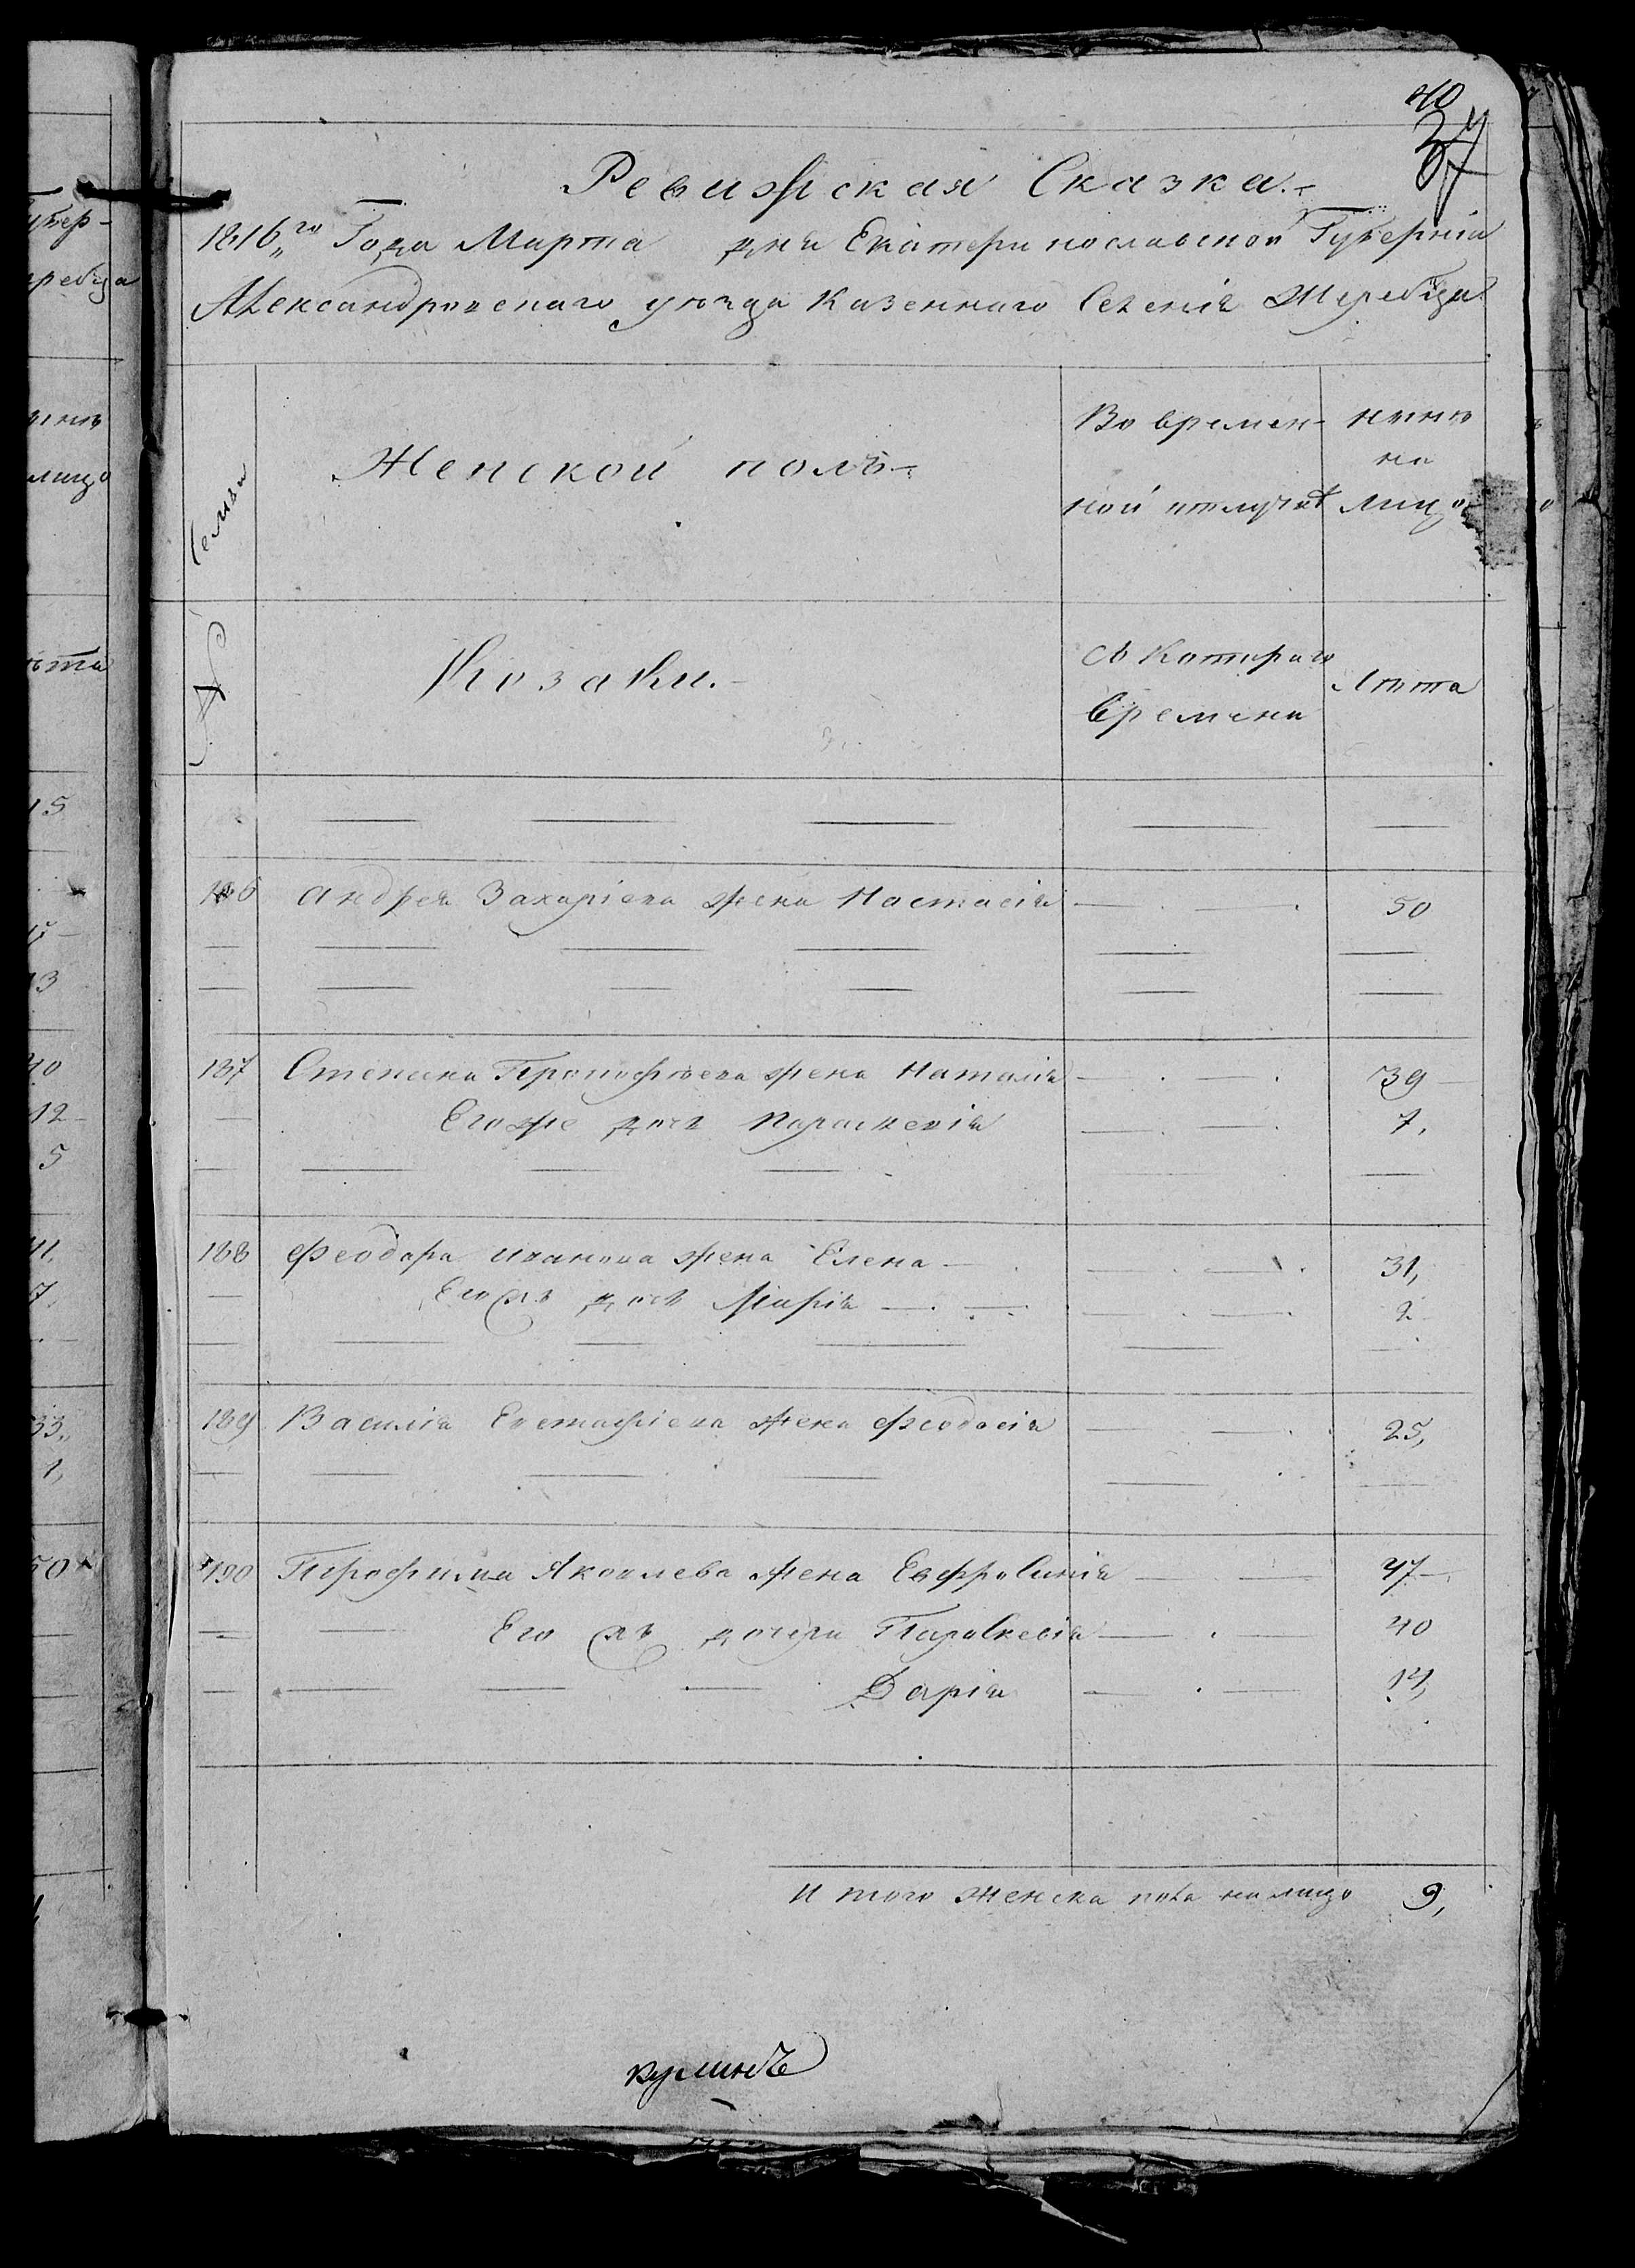 40
37
Ревижская Сказка.
1816„го Года Марта дня Екатеринославской Губерніи
Александровскаго уезда Казеннаго Селенія Жеребца
№ Семьи
Женской полъ
Во времен-
ной отлучкѣ
нынѣ
на
лицо
Козаки.
Съ Котораго
времени
Лѣта
186 Андрея Захаріева жена Настасія 50
187 Степана Прокофѣева жена Наталія 39
Егоже дочь Параскевія 7,
188 Феодора Иванова жена Елена 31,
Егожъ дочь Марія 2
189 Василія Евстафіева жена Феодосія 25,
190 Трофима Яковлева жена Евфросинія 47
Его жъ дочери Параскевія 40
Дарія 14,
И того женска пола налицо 9,
губер-
еребца
ынѣ
лицо
ѣта
15
13
40
12
5
41,
7,
33„
1,
50